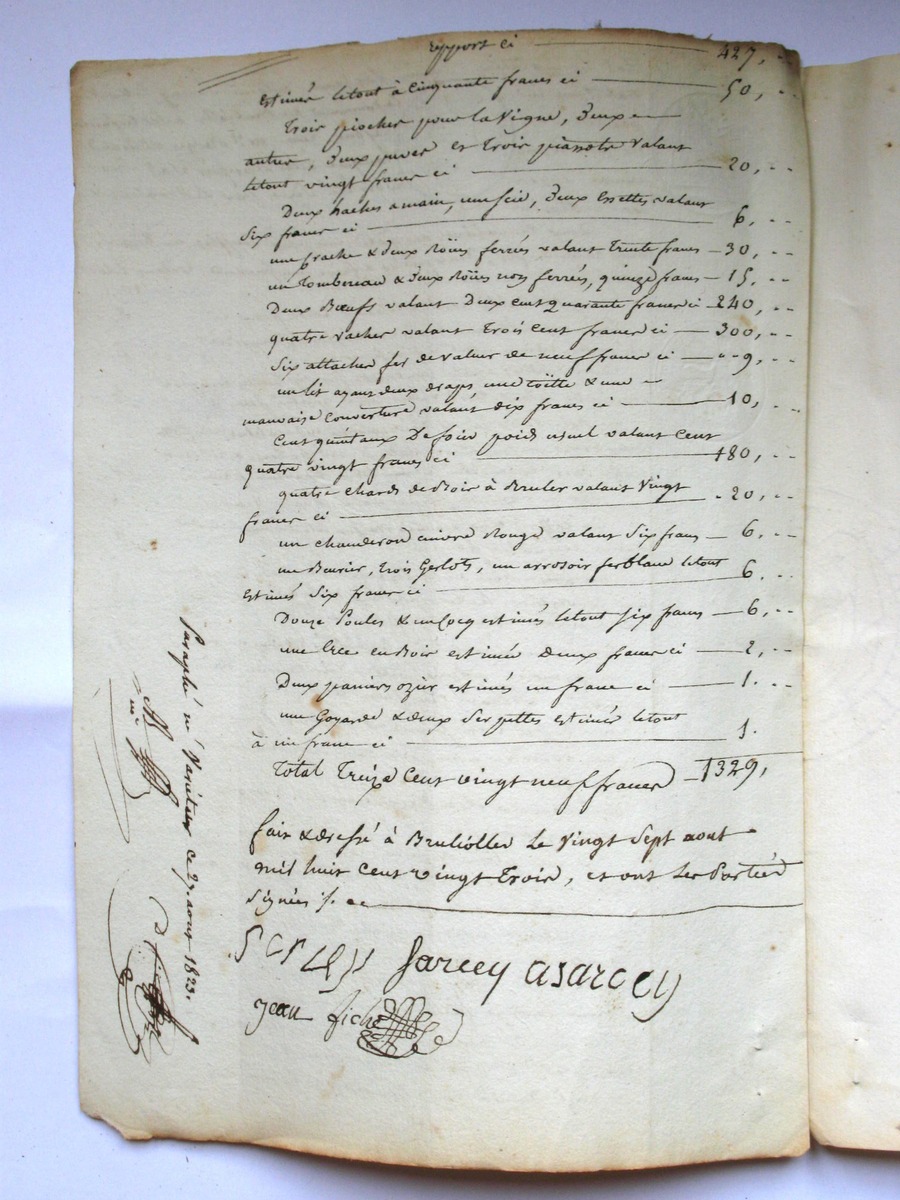 report ci 427, --
estimés letout à Cinquante francs ci 50, --
Trois pioches pour la Vigne, Deux
autres, Deux et Trois valant
letout vingt francs ci 20, --
Deux haches a main, une scie, Deux Essettes valant
six francs ci 6, --
une & Deux Roües ferrées valant Trente francs 30, --
un tombereau & Deux Roües non ferrées, quinze francs 15, --
Deux Bœufs valant Deux cent quarante francs ci 240, --
quatre vaches valant Trois Cent francs ci 300, --
Six attaches fer de valeur de neuf francs ci 9, --
un lit ayant deux draps une Coëtte & une
mauvaise couverture valant dix francs ci 10, --
Cent quintaux De foin poids usuel valant Cent
quatre vingt francs ci 180, --
quatre chards de Bois à Bruler valant Vingt
francs ci 20, --
un chauderon cuivre Rouge valant Six francs 6, --
une Beurier, trois Gerlots, un arrosoir ferblanc letout
Estimés Six francs ci 6. --
Douze Poules & un Cocq estimés letout six francs 6, --
une en Bois estimée deux francs ci 2, --
Deux paniers ozier estimés un franc ci 1. --
une Goyarde & deux Serpettes estimés letout
à un franc ci 1.
Total Treize Cent vingt neuf francs 1329,
fait & dressé à Brulliolles Le Vingt Sept aout
mil huit Cent vingt Trois, et ont Les Parties
signées ./.
Sarcey asarcey
jean fiche
Paraphé né Varietur ce 27 aout 1823.